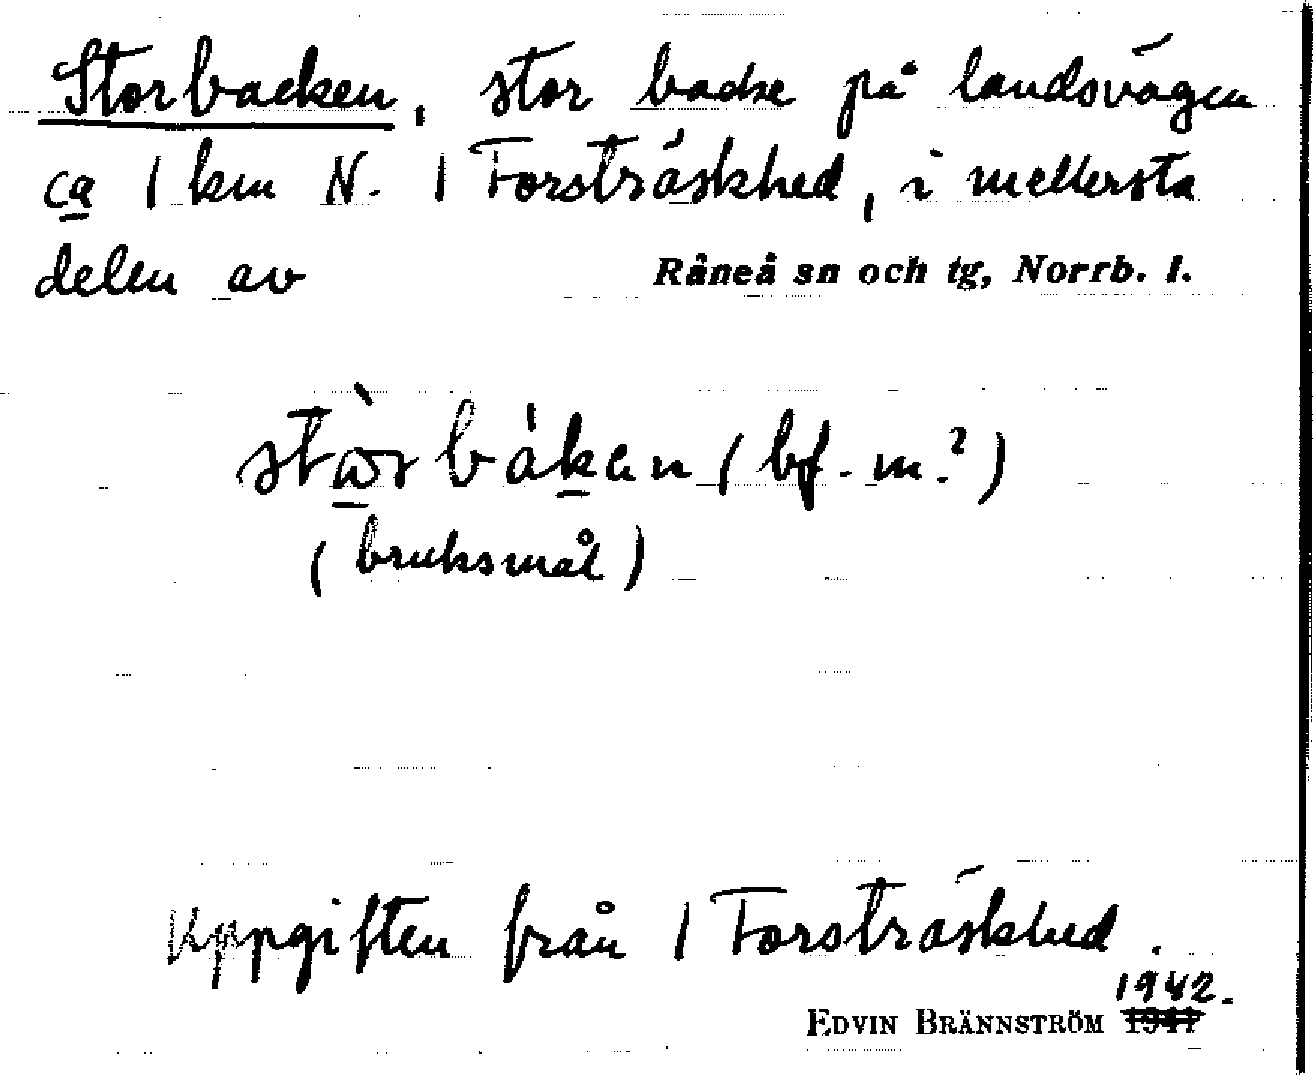 Storbacken, stor backe på landsvägen
ca 1 km N. 1 Forsträskhed, i mellersta
delen av Råneå sn och tg, Norrb. l.
(bf. m.?)
(bruksmål)
Uppgiften från 1 Forsträskhed.
1942.
EDVIN BRÄNNSTRÖM 1941